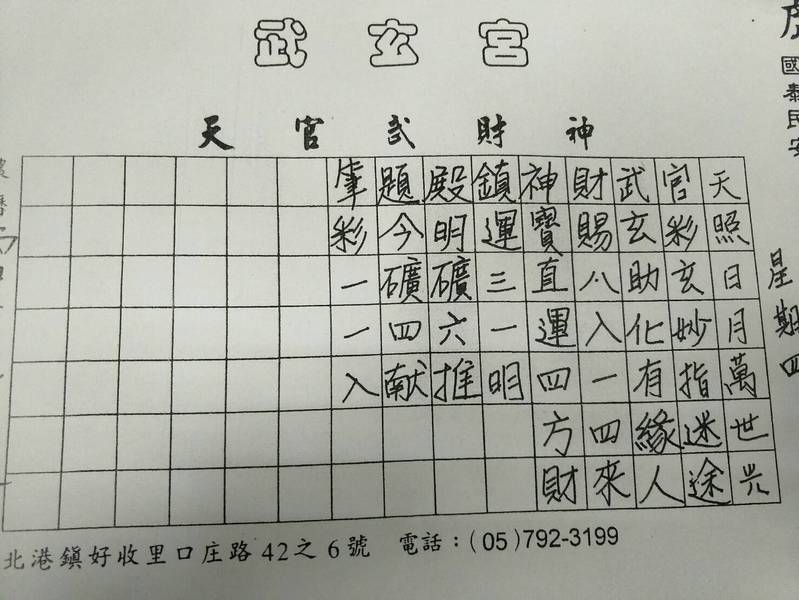 武玄宮
天官武財神
國泰民安
星期四
天照日月萬世光
官彩玄妙指迷途
武玄助化有緣人
財賜八入一四來
神寶直運四方財
鎮運三一明
殿明礦六推
題今礦四献
筆彩一一入
北港鎮好收里口庄路42之6號 電話：(05)792-3199